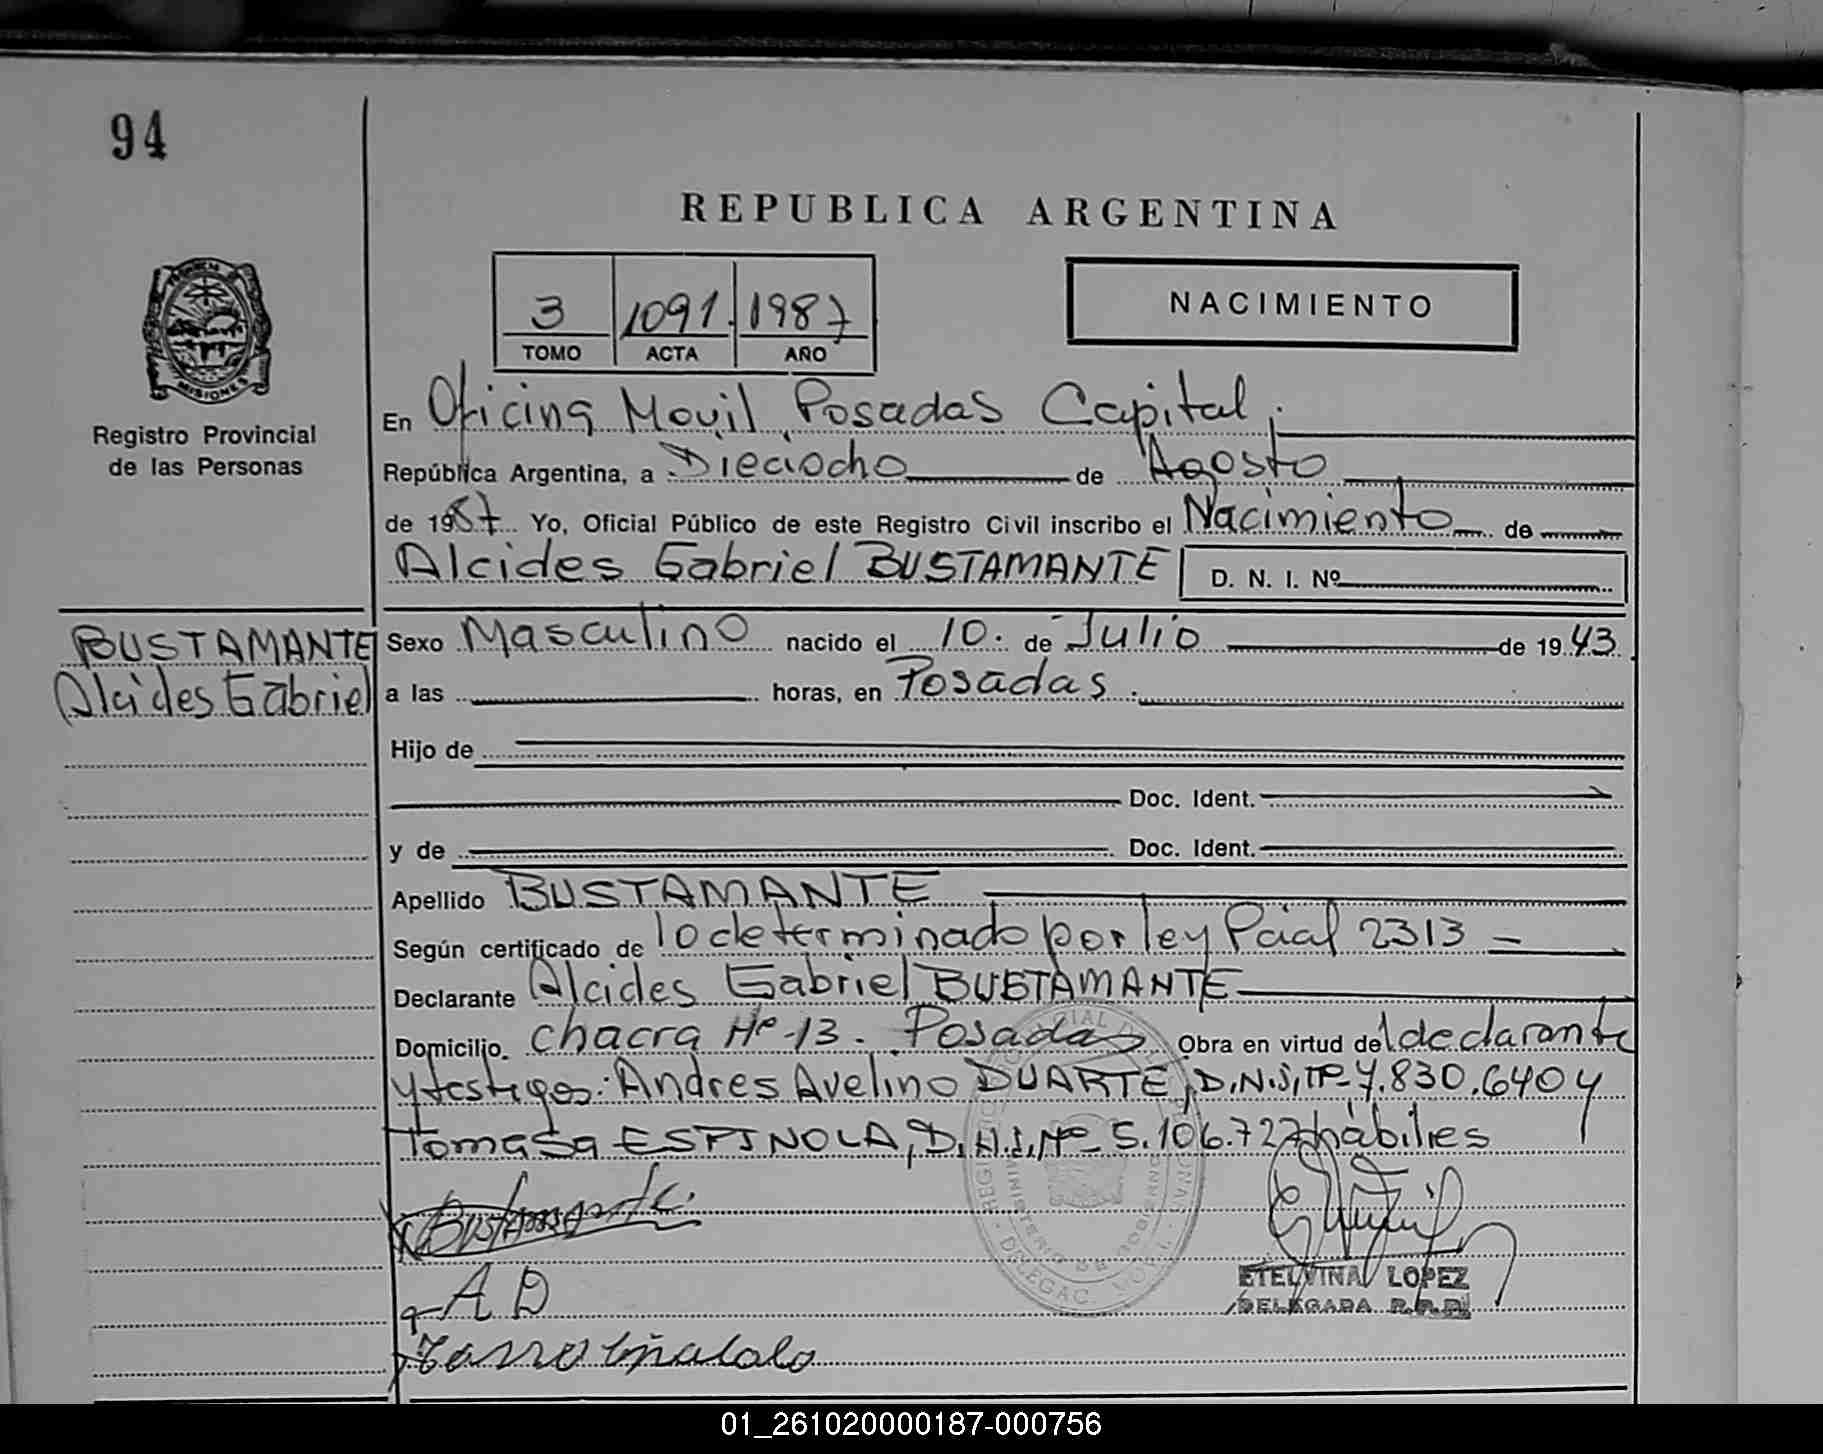 94
REPUBLICA ARGENTINA
3 1091 1987
TOMO ACTA AÑO
NACIMIENTO
PROVINCIA DE
MISIONES
Registro Provincial
de las Personas
En Oficina Movil Posadas Capital.
República Argentina, a Dieciocho de Agosto
de 1987 Yo, Oficial Público de este Registro Civil inscribo el Nacimiento de
Alcides Gabriel BUSTAMANTE D. N. I. Nº
BUSTAMANTE
Alcides Gabriel
Sexo Masculino nacido el 10. de Julio de 1943
a las horas, en Posadas.
Hijo de
Doc. Ident.
y de Doc. Ident.
Apellido BUSTAMANTE
Según certificado de lo determinado por ley Pcial 2313
Declarante Alcides Gabriel BUSTAMANTE
Domicilio. chacra Nº 13. Posadas Obra en virtud del declarante
y testigos: Andres Avelino DUARTE, D.N.I, Nº 7.830.640 y
Tomasa ESPINOLA, D.N.I, Nº 5.106.727 hábiles
Bustamante.
A D
ETELVINA LOPEZ
DELEGADA R.P.P.
MINISTERIO DE GOBIERNO
01_261020000187-000756